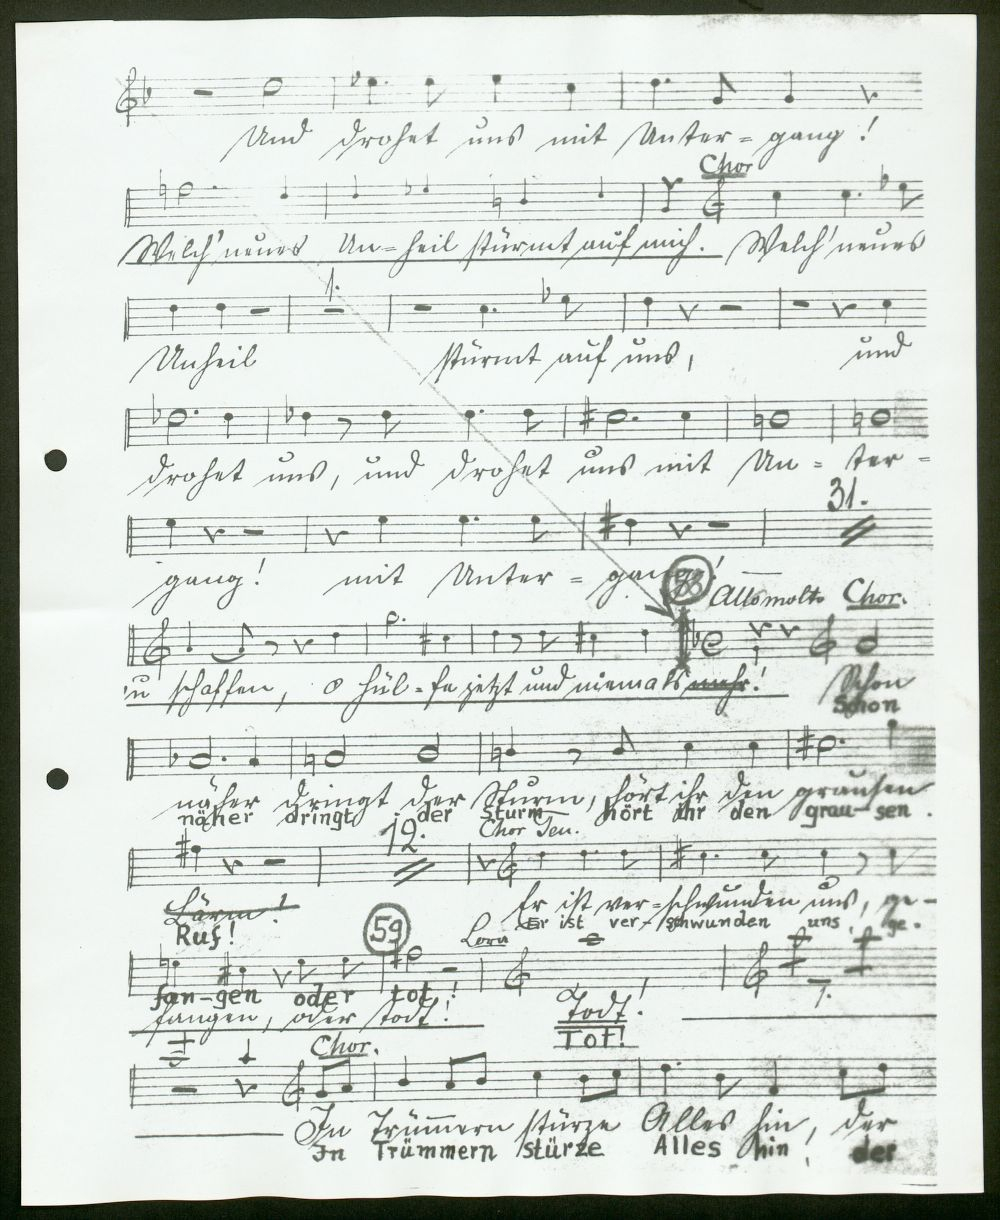 Und drohet uns mit Unter=gang!
Chor
Welch' neues Un=heil stürmt auf mich. Welch' neues
1.
Unheil stürmt auf uns, und
drohet uns, und drohet uns mit Un=ter=
31.
gang! mit Unter=gang!
58 Allo molto Chor.
schaffen, o hül=fe jetzt und niemals mehr! Schon
Schon
näher dringt der Sturm, hört ihr den grausen
näher dringt der Sturm hört ihr den grau-sen.
12. Chor Ten.
Lärm! Er ist ver=schwunden uns, ge-
Ruf! Er ist ver-schwunden uns, ge-
59 Lora
fan-gen oder tot! 7.
fangen, oder todt! Todt!
Tot!
Chor.
In Trümmern stürze Alles hin, der
In Trümmern stürze Alles hin, der